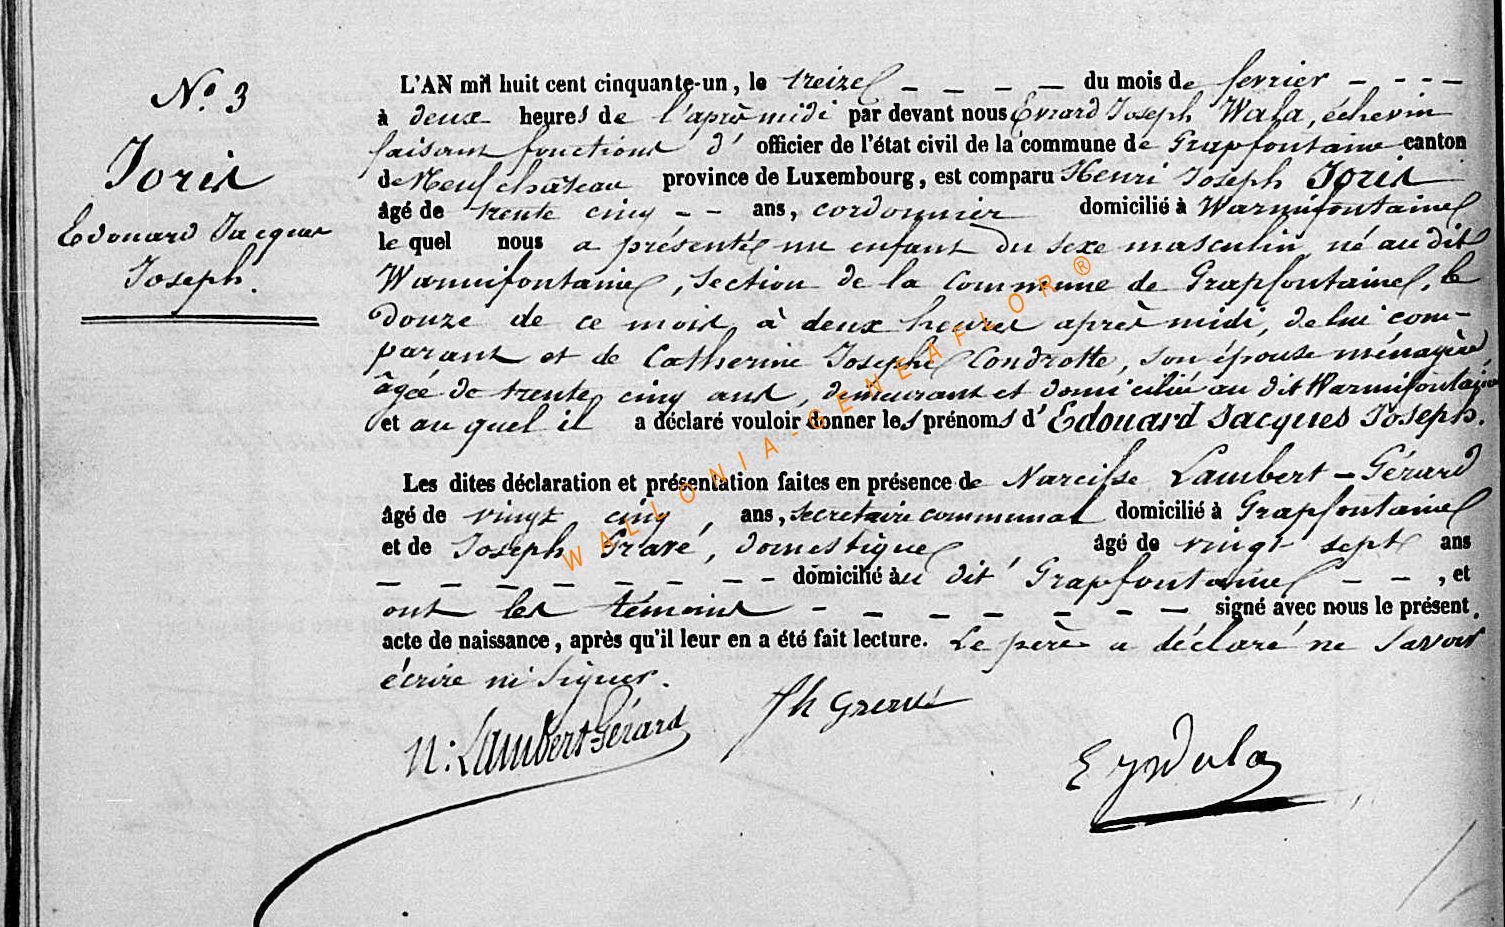 N.o 3
Joris
Edouard Jacques
Joseph.
L'AN mil huit cent cinquante-un, le treize — — — — du mois de fevrier - - - -
à deux heures de l'après midi par devant nous Evrard Joseph Wala, échevin
faisant fonctions d' officier de l'état civil de la commune de Grapfontaine canton
de Neufchâteau province de Luxembourg, est comparu Henri Joseph Joris
âgé de trente cinq - - ans, cordonnier domicilié à Warmifontaine
le quel nous a présenté un enfant du sexe masculin, né au dit
Warmifontaine, section de la commune de Grapfontaine, le
douze de ce mois, à deux heures après midi, de lui com-
parant et de Catherine Josephe Condrotte, son épouse ménagère,
âgée de trente cinq ans, demeurant et domiciliée au dit Warmifontaine
et au quel il a déclaré vouloir donner les prénoms d'Edouard Jacques Joseph.
Les dites déclaration et présentation faites en présence de Narcisse Lambert - Gérard
âgé de vingt cinq, ans, secretaire communal domicilié à Grapfontaine
et de Joseph Gravé, domestique, âgé de vingt sept ans
— — — — — — — - domicilié au dit Grapfontaine — —, et
ont les témoins — — — — — — — signé avec nous le présent
acte de naissance, après qu'il leur en a été fait lecture. Le père a déclaré ne savoir
écrire ni signer.
N: Lambert-Gérard
Jh
E J Wala
WALLONIA-GENEAFLOR®